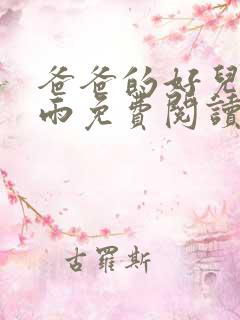 爸爸的好兒
雨免費閱讀
古羅斯